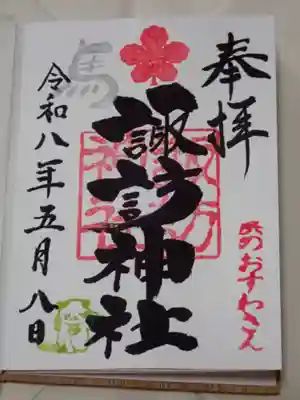 奉拝
のおすわさん
諏訪神社
馬
令和八年五月八日